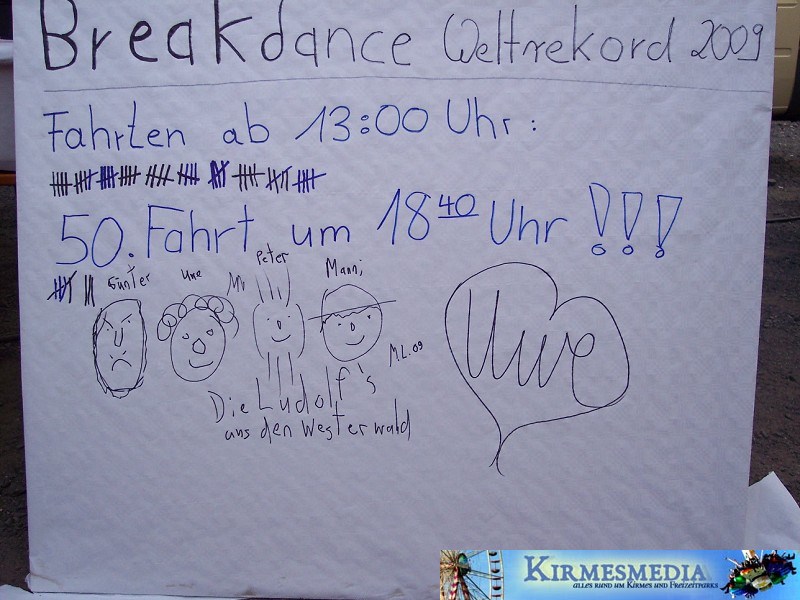 Breakdance Weltrekord 2009
Fahrten ab 13:00 Uhr:
50. Fahrt um 18 40 Uhr !!!
Günter Uwe Peter Manni
M.L.09
Die Ludolf's
aus den Westerwald
Uwe
KIRMESMEDIA
ALLES RUND UM KIRMES UND FREIZEITPARKS